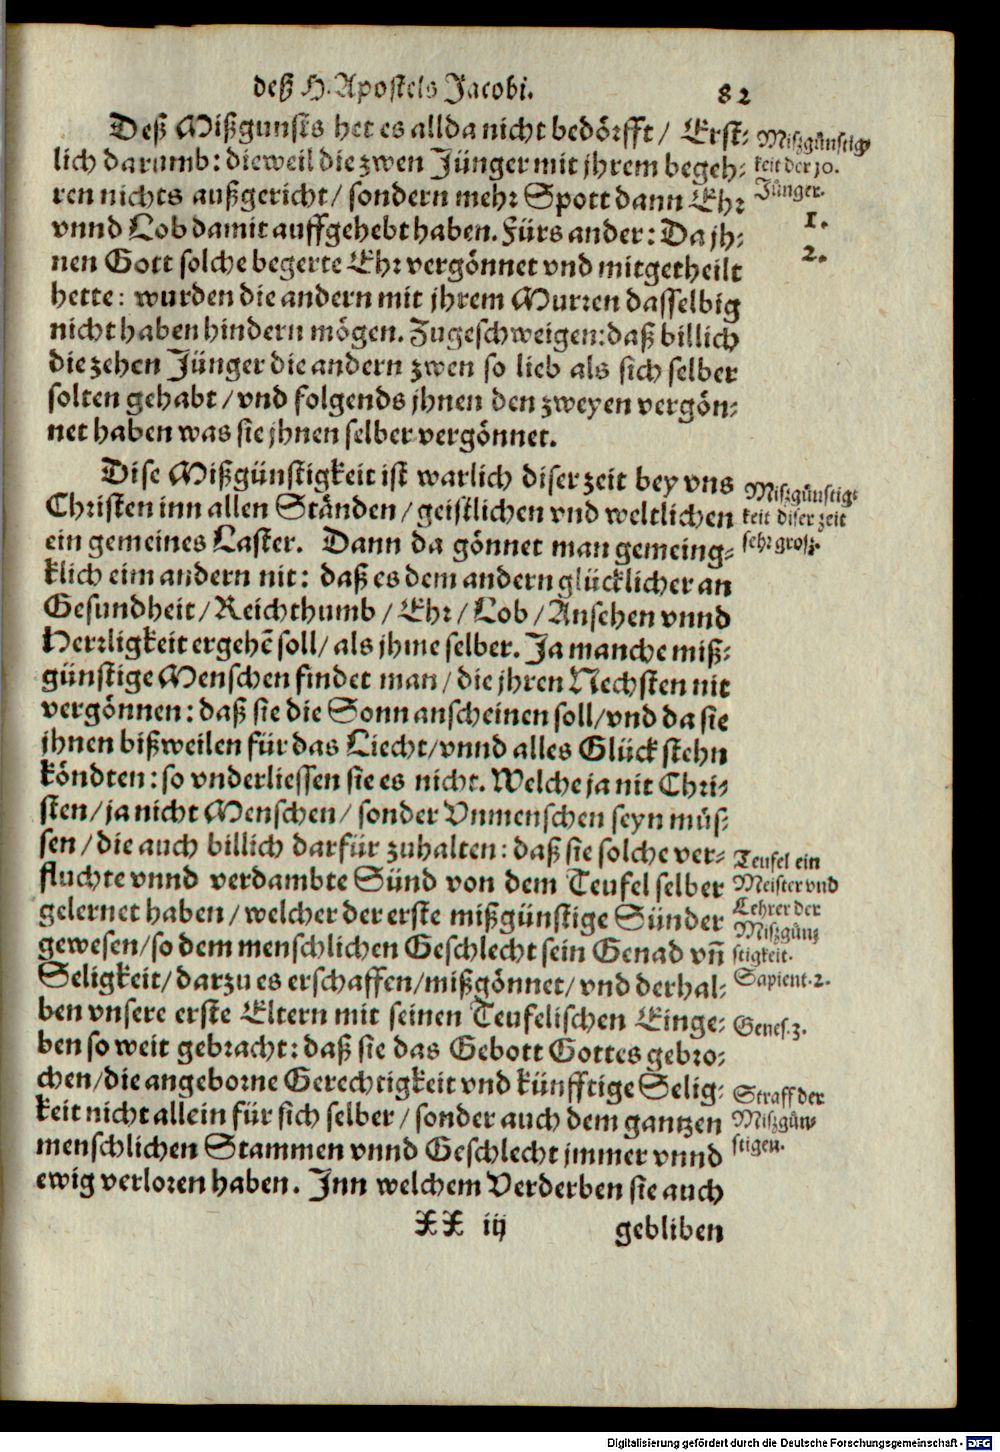 deß H. Apostels Jacobi. 82
Deß Mißgunsts het es allda nicht bedörfft / Erst-
lich darumb: dieweil die zwen Jünger mit jhrem begeh-
ren nichts außgericht / sondern mehr Spott dann Ehr
vnnd Lob damit auffgehebt haben. Fürs ander: Da jh-
nen Gott solche begerte Ehr vergönnet vnd mitgetheilt
hette: wurden die andern mit jhrem Murren dasselbig
nicht haben hindern mögen. Zugeschweigen: daß billich
die zehen Jünger die andern zwen so lieb als sich selber
solten gehabt / vnd folgends jhnen den zweyen vergön-
net haben was sie jhnen selber vergönnet.
Mißgünstig-
keit der 10.
Jünger.
1.
2.
Dise Mißgünstigkeit ist warlich diser zeit bey vns
Christen inn allen Ständen / geistlichen vnd weltlichen
ein gemeines Laster. Dann da gönnet man gemeing-
klich eim andern nit: daß es dem andern glücklicher an
Gesundheit / Reichthumb / Ehr / Lob / Ansehen vnnd
Herrligkeit ergehẽ soll / als jhme selber. Ja manche miß-
günstige Menschen findet man / die jhren Nechsten nit
vergönnen: daß sie die Sonn anscheinen soll / vnd da sie
jhnen bißweilen für das Liecht / vnnd alles Glück stehn
köndten: so vnderliessen sie es nicht. Welche ja nit Chri-
sten / ja nicht Menschen / sonder Vnmenschen seyn müs-
sen / die auch billich darfür zuhalten: daß sie solche ver-
fluchte vnnd verdambte Sünd von dem Teufel selber
gelernet haben / welcher der erste mißgünstige Sünder
gewesen / so dem menschlichen Geschlecht sein Genad vñ
Seligkeit / darzu es erschaffen / mißgönnet / vnd derhal-
ben vnsere erste Eltern mit seinen Teufelischen Einge-
ben so weit gebracht: daß sie das Gebott Gottes gebro-
chen / die angeborne Gerechtigkeit vnd künfftige Selig-
keit nicht allein für sich selber / sonder auch dem gantzen
menschlichen Stammen vnnd Geschlecht jmmer vnnd
ewig verloren haben. Inn welchem Verderben sie auch
Mißgünstig-
keit diser zeit
sehr groß.
Teufel ein
Meister vnd
Lehrer der
Mißgün-
stigkeit.
Sapient. 2.
Genes. 3.
Straff der
Mißgün-
stigen.
XX iij gebliben
Digitalisierung gefördert durch die Deutsche Forschungsgemeinschaft - DFG